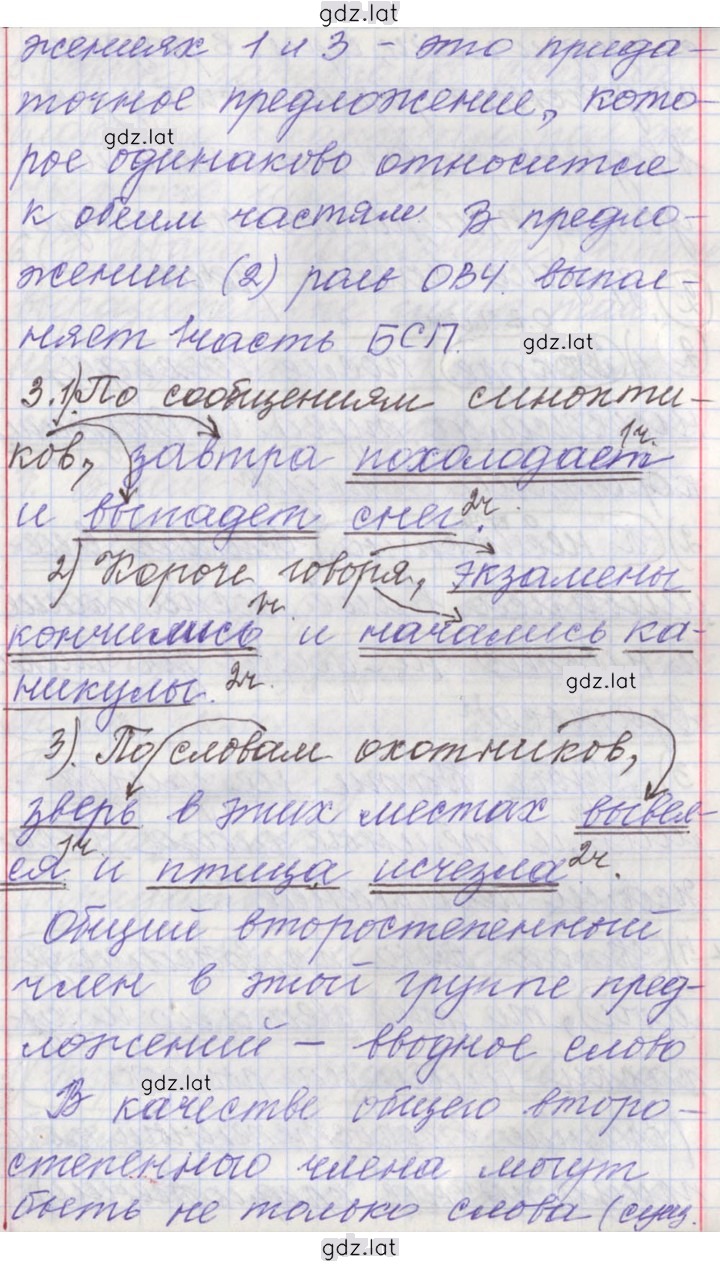 gdz.lat
жениях 1 и 3 - это прида-
точное предложение, кото-
gdz.lat
рое одинаково относится
к обеим частям. В предло-
жении (2) роль ОВЧ. выпол-
няет 1 часть БСП.
gdz.lat
3.1). По сообщениям синопти-
ков, завтра похолодает 1ч.
и выпадет снег 2ч.
2) Короче говоря, экзамены
кончились 1ч. и начались ка-
никулы. 2ч.
gdz.lat
3). По словам охотников,
зверь в этих местах вывел-
ся 1ч и птица исчезла 2ч.
Общий второстепенный
член в этой группе пред-
ложений – вводное слово
gdz.lat
В качестве общего второ-
степенного члена могут
быть не только слова (сущ.
gdz.lat